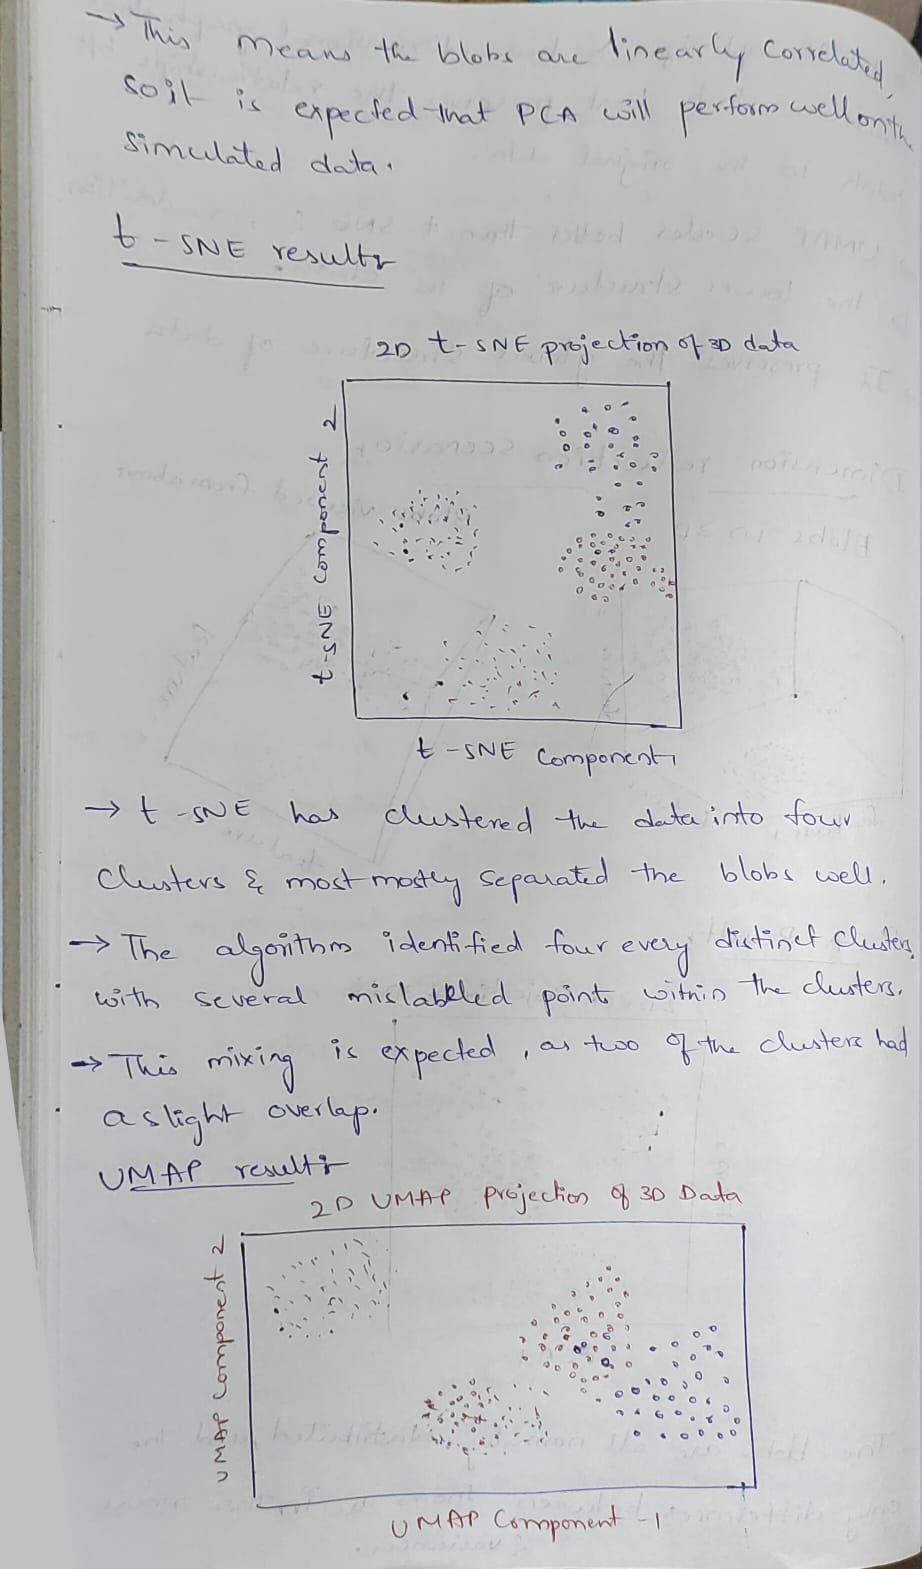 → This means the blobs are linearly correlated,
so it is expected that PCA will perform well on the
simulated data.
t-SNE results
2D t-SNE projection of 3D data
t-SNE Component 2
t-SNE Component 1
→ t-SNE has clustered the data into four
clusters & most mostly separated the blobs well.
→ The algorithm identified four every distinct clusters,
with several mislabled point within the clusters.
→ This mixing is expected, as two of the clusters had
a slight overlap.
UMAP results
2D UMAP projection of 3D Data
UMAP Component 2
UMAP Component -1